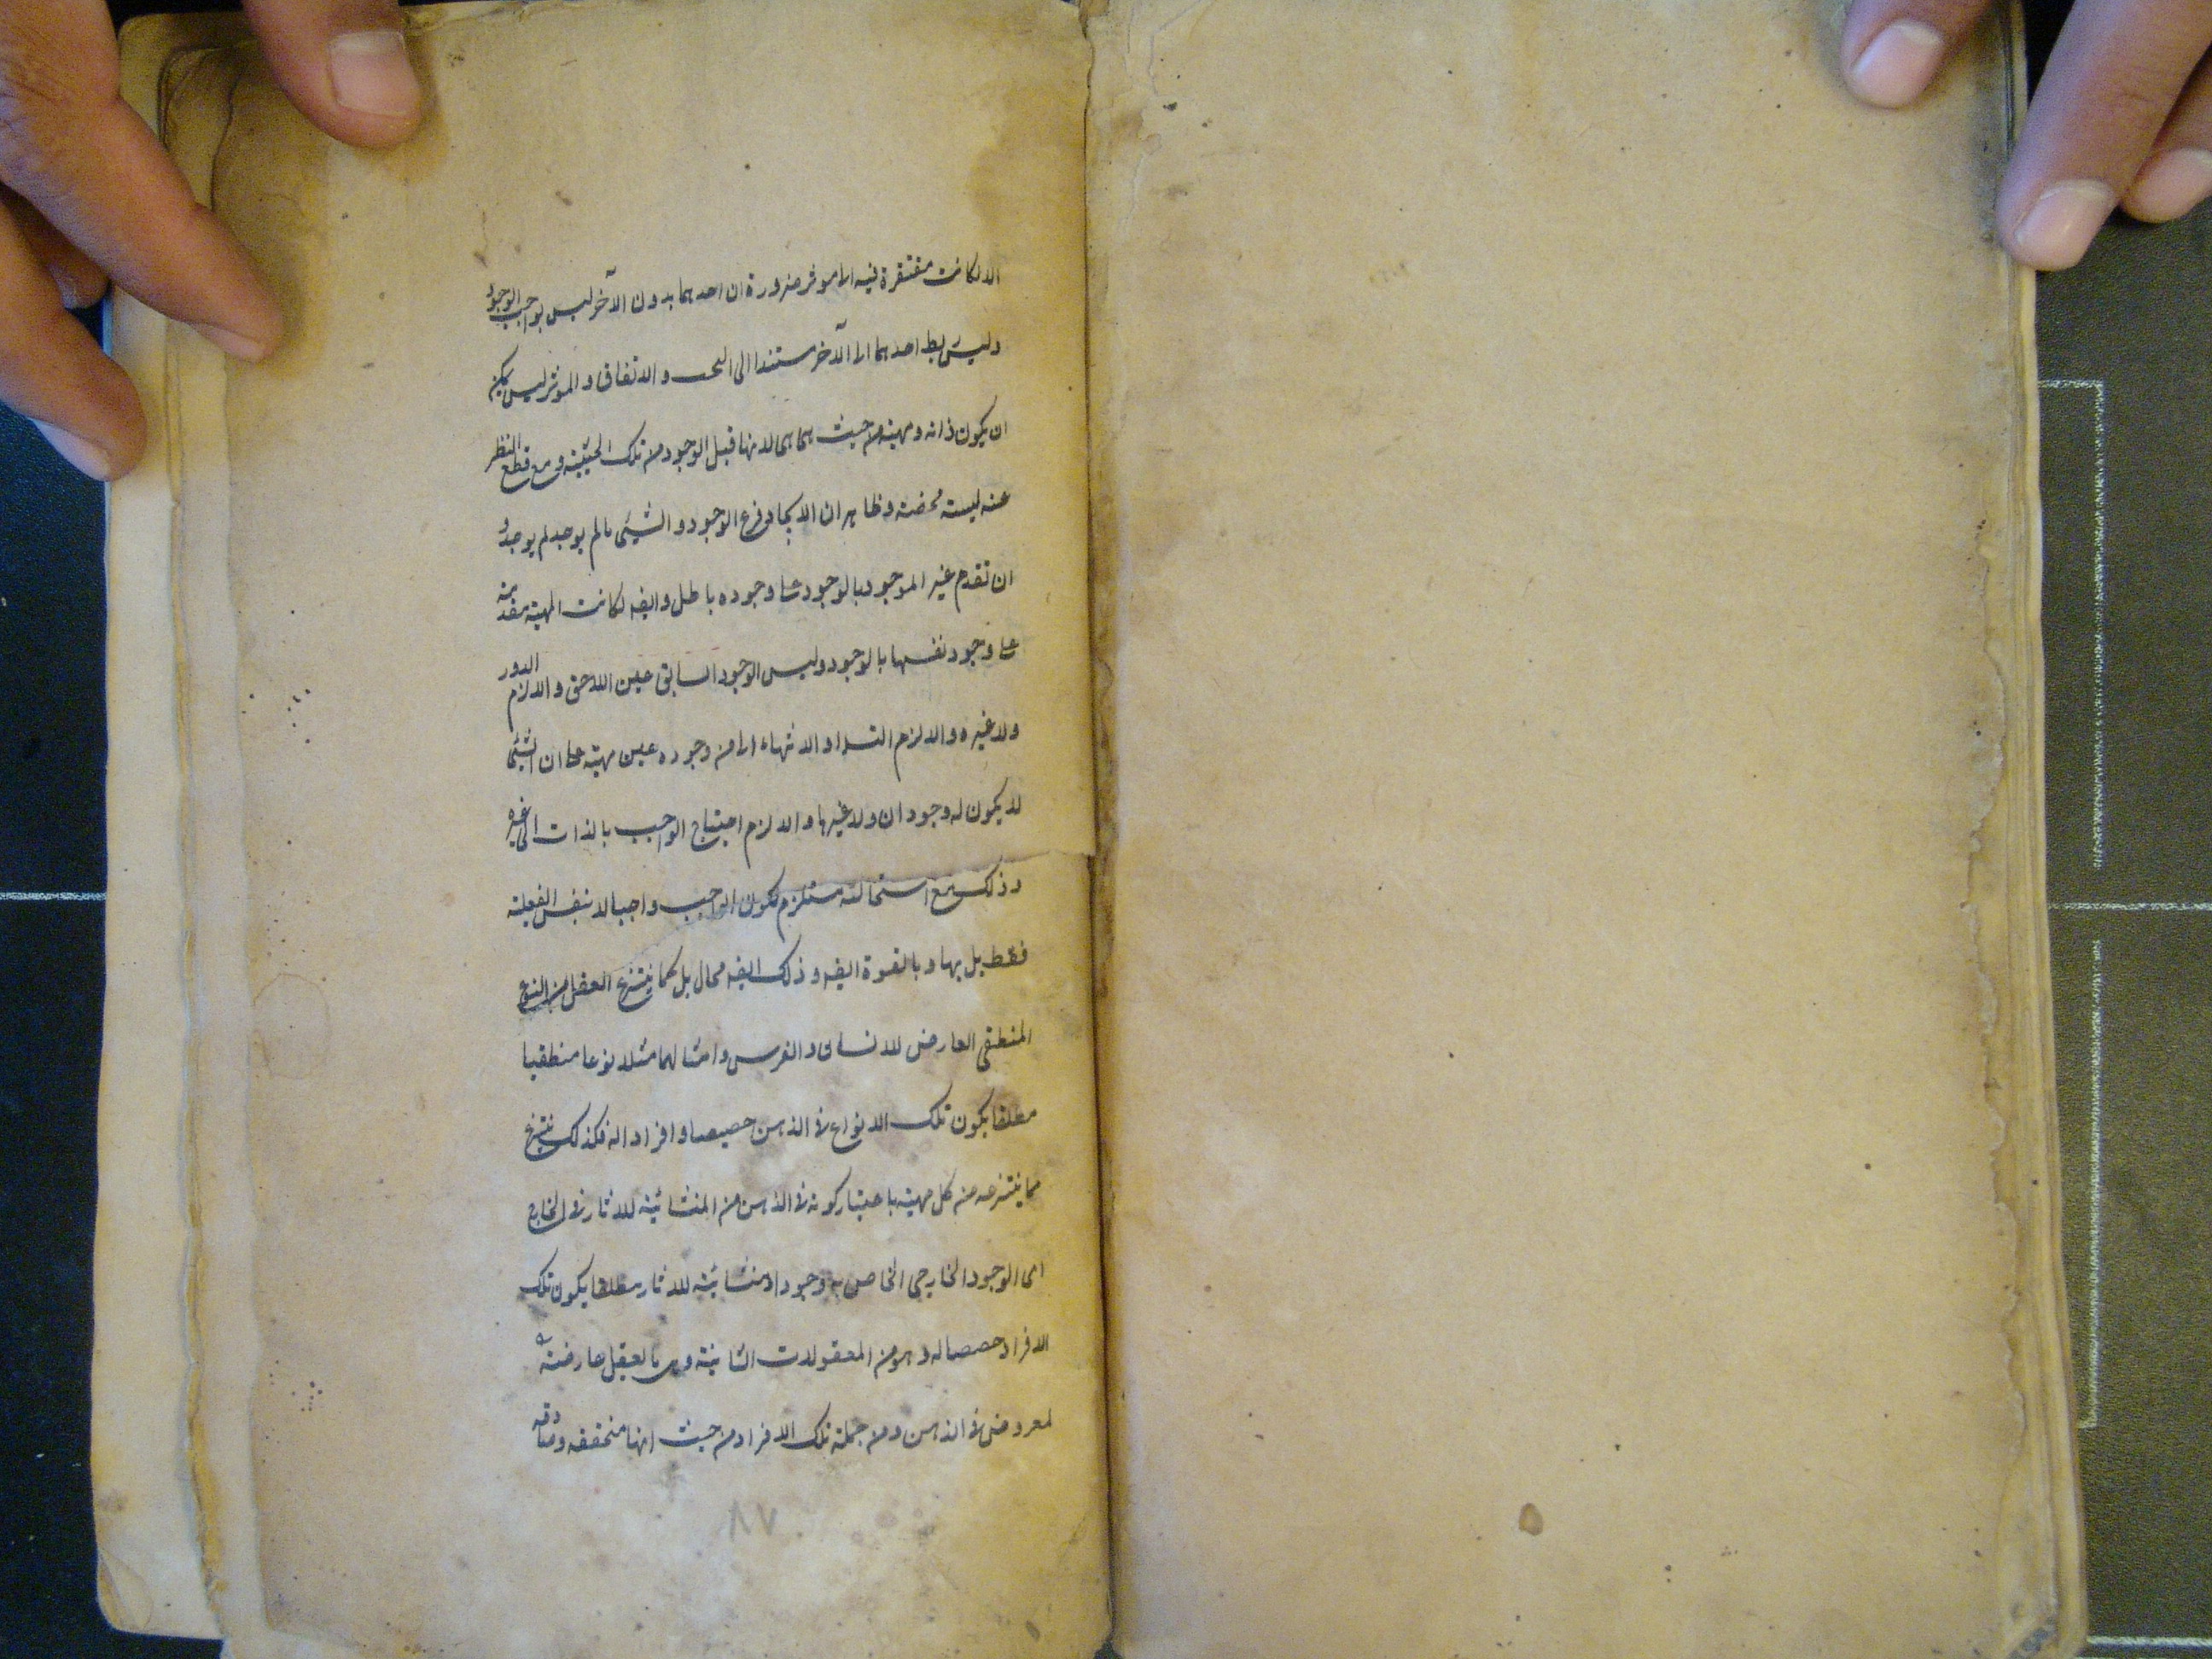 الا لكانت مفتقرة فيه الى موثر ضرورة ان احدهما بدون الآخر ليس بواجب الوجود
وليس ربط احدهما الى الآخر مستندا الى البخت والاتفاق والموثر ليس يمكن
ان يكون ذاته ومهيته من حيث هما هى لانها قبل الوجود من تلك الحيثية ومع قطع النظر
عنه ليسته محضته وظاهر ان الايجاد فرع الوجود والشيئ مالم يوجد لم يوجد و
ان تقدم غير الموجود بالوجود على وجوده باطل وايضه لكانت المهية مقدمة
على وجود نفسها بالوجود وليس الوجود السابق عين اللاحق والا لزم الدور
ولا غيره والا لزم التسـ او الانتهاء الى من وجوده عين مهيته على ان الشيئ
لا يكون له وجودان ولا غيرها والا لزم احتياج الواجب بالذات الى غيره
وذلك مع استحالته مستلزم لكون الواجب واجبا لا بنفس الفعلية
فقط بل بها وبالقوة ايضه وذلك ايضه محال بل كما ينتزع العقل من النوع
المنطقى العارض للانسان والفرس وامثالهما مثلا نوعا منطقيا
مطلقا يكون تلك الانواع فى الذهن حصصا وافرادا له فكذلك ينتزع
مما ينتزعه من كل مهية باعتبار كونه فى الذهن من المنشائية للاثار فى الخارج
اى الوجود الخارجى الخاص به وجودا ومنشائية للاثار مطلقا يكون تلك
الافراد حصصا له وهو من المعقولات الثانية وهى بالعقل عارضته
لمعروض فى الذهن ومن جملة تلك الافراد من حيث انها متحققه وصادقه
٨٧